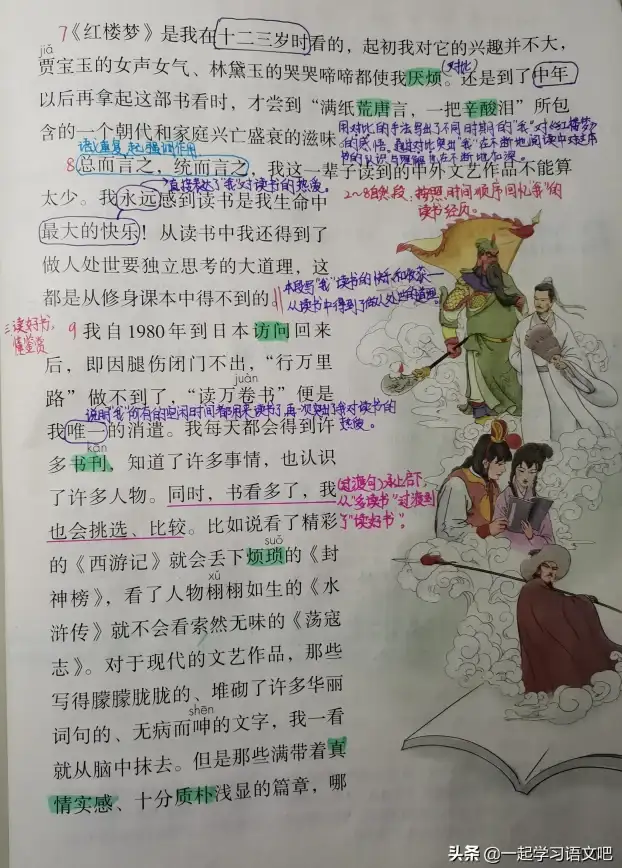 7《红楼梦》是我在十二三岁时看的，起初我对它的兴趣并不大，
jiá
(对比)
贾宝玉的女声女气、林黛玉的哭哭啼啼都使我厌烦。还是到了中年
以后再拿起这部书看时，才尝到“满纸荒唐言，一把辛酸泪”所包
含的一个朝代和家庭兴亡盛衰的滋味。
用对比的手法写出了不同时期的“我”对《红楼梦》
的感悟。通过对比突出“我”在不断地阅读中对这
书的认识与理解也在不断地加深。
语义重复，起强调作用
8 总而言之，统而言之，我这一辈子读到的中外文艺作品不能算
直接表达了“我”对读书的热爱。
太少。我永远感到读书是我生命中
2～8自然段：按照时间顺序回忆“我”的
读书经历。
最大的快乐！从读书中我还得到了
做人处世要独立思考的大道理，这
都是从修身课本中得不到的。
本段写“我”读书的快乐和收获——
从读书中得到了做人处世的道理。
三、读好书，
懂鉴赏
9 我自1980年到日本访问回来
后，即因腿伤闭门不出，“行万里
juàn
路”做不到了，“读万卷书”便是
说明“我”所有的空闲时间都用来读书了，再一次突出了我对读书的
热爱。
我唯一的消遣。我每天都会得到许
kān
多书刊，知道了许多事情，也认识
了许多人物。同时，书看多了，我
(过渡句)承上启下，
从“多读书”过渡到
了“读好书”。
也会挑选、比较。比如说看了精彩
suǒ
的《西游记》就会丢下烦琐的《封
xǔ
神榜》，看了人物栩栩如生的《水
浒传》就不会看索然无味的《荡寇
志》。对于现代的文艺作品，那些
写得朦朦胧胧的、堆砌了许多华丽
shēn
词句的、无病而呻的文字，我一看
就从脑中抹去。但是那些满带着真
情实感、十分质朴浅显的篇章，哪
头条 @一起学习语文吧